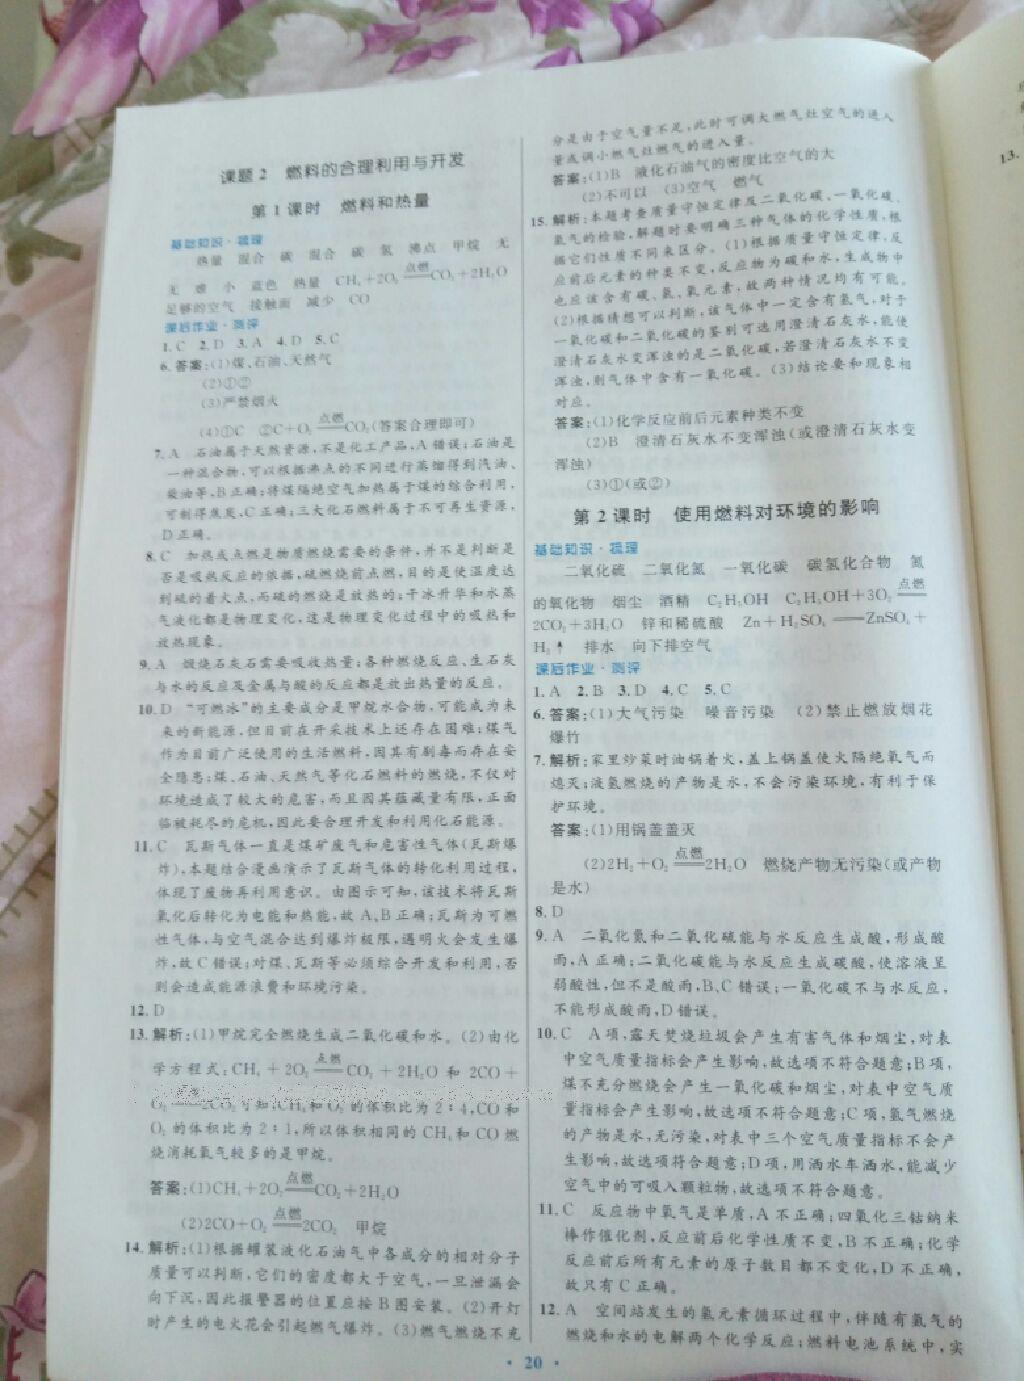 课题2 燃料的合理利用与开发
第1课时 燃料和热量
基础知识·梳理
热量 混合 碳 混合 碳 氢 沸点 甲烷 无
无 难 小 蓝色 热量 CH₄+2O₂ 点燃 CO₂+2H₂O
足够的空气 接触面 减少 CO
课后作业·测评
1.C 2.D 3.A 4.D 5.C
6.答案:(1)煤、石油、天然气
(2)①②
(3)严禁烟火
(4)①C ②C+O₂ 点燃 CO₂(答案合理即可)
7.A 石油属于天然资源,不是化工产品,A错误;石油是
一种混合物,可以根据沸点的不同进行蒸馏得到汽油、
柴油等,B正确;将煤隔绝空气加热属于煤的综合利用,
可制得焦炭、C正确;三大化石燃料属于不可再生资源,
D正确。
8.C 加热或点燃是物质燃烧需要的条件,并不是判断是
否是吸热反应的依据,硫燃烧前点燃,目的是使温度达
到硫的着火点,而硫的燃烧是放热的;干冰升华和水蒸
气液化都是物理变化,这是物理变化过程中的吸热和
放热现象。
9.A 煅烧石灰石需要吸收热量;各种燃烧反应、生石灰
与水的反应及金属与酸的反应都是放出热量的反应。
10.D “可燃冰”的主要成分是甲烷水合物,可能成为未
来的新能源,但目前在开采技术上还存在困难;煤气
作为目前广泛使用的生活燃料,因其有剧毒而存在安
全隐患;煤、石油、天然气等化石燃料的燃烧,不仅对
环境造成了较大的危害,而且因其蕴藏量有限,正面
临被耗尽的危机,因此要合理开发和利用化石能源。
11.C 瓦斯气体一直是煤矿废气和危害性气体(瓦斯爆
炸),本题结合漫画演示了瓦斯气体的转化利用过程,
体现了废物再利用意识。由图示可知,该技术将瓦斯
氧化后转化为电能和热能,故A、B正确;瓦斯为可燃
性气体,与空气混合达到爆炸极限,遇明火会发生爆
炸,故C错误;对煤、瓦斯等必须综合开发和利用,否
则会造成能源浪费和环境污染。
12.D
13.解析:(1)甲烷完全燃烧生成二氧化碳和水。(2)由化
学方程式:CH₄+2O₂ 点燃 CO₂+2H₂O 和 2CO+
O₂ 点燃 2CO₂可知,CH₄和O₂的体积比为2∶4,CO和
O₂的体积比为2∶1,所以体积相同的CH₄和CO燃
烧消耗氧气较多的是甲烷。
答案:(1)CH₄+2O₂ 点燃 CO₂+2H₂O
(2)2CO+O₂ 点燃 2CO₂ 甲烷
14.解析:(1)根据罐装液化石油气中各成分的相对分子
质量可以判断,它们的密度都大于空气,一旦泄漏会
向下沉,因此报警器的位置应按B图安装。(2)开灯
时产生的电火花会引起燃气爆炸。(3)燃气燃烧不充
分是由于空气量不足,此时可调大燃气灶空气的进入
量或调小燃气灶燃气的进入量。
答案:(1)B 液化石油气的密度比空气的大
(2)不可以 (3)空气 燃气
15.解析:本题考查质量守恒定律及二氧化碳、一氧化碳、
氢气的检验,解题时要明确三种气体的化学性质,根
据它们性质不同来区分。(1)根据质量守恒定律,反
应前后元素的种类不变,反应物为碳和水,生成物中
也应该含有碳、氢、氧元素,故两种情况均有可能。
(2)根据猜想可以判断,该气体中一定含有氢气,对于
一氧化碳和二氧化碳的鉴别可选用澄清石灰水,能使
澄清石灰水变浑浊的是二氧化碳,若澄清石灰水不变
浑浊,则气体中含有一氧化碳。(3)结论要和现象相
对应。
答案:(1)化学反应前后元素种类不变
(2)B 澄清石灰水不变浑浊(或澄清石灰水变
浑浊)
(3)①(或②)
第2课时 使用燃料对环境的影响
基础知识·梳理
二氧化硫 二氧化氮 一氧化碳 碳氢化合物 氮
的氧化物 烟尘 酒精 C₂H₅OH C₂H₅OH+3O₂ 点燃
2CO₂+3H₂O 锌和稀硫酸 Zn+H₂SO₄══ZnSO₄+
H₂↑ 排水 向下排空气
课后作业·测评
1.A 2.B 3.D 4.C 5.C
6.答案:(1)大气污染 噪音污染 (2)禁止燃放烟花
爆竹
7.解析:家里炒菜时油锅着火,盖上锅盖使火隔绝氧气而
熄灭;液氢燃烧的产物是水,不会污染环境,有利于保
护环境。
答案:(1)用锅盖盖灭
(2)2H₂+O₂ 点燃 2H₂O 燃烧产物无污染(或产物
是水)
8.D
9.A 二氧化氮和二氧化硫能与水反应生成酸,形成酸
雨,A正确;二氧化碳能与水反应生成碳酸,使溶液呈
弱酸性,但不是酸雨,B、C错误;一氧化碳不与水反应,
不能形成酸雨,D错误。
10.C A项,露天焚烧垃圾会产生有害气体和烟尘,对表
中空气质量指标会产生影响,故选项不符合题意;B项,
煤不充分燃烧会产生一氧化碳和烟尘,对表中空气质
量指标会产生影响,故选项不符合题意;C项,氢气燃烧
的产物是水,无污染,对表中三个空气质量指标不会产
生影响,故选项符合题意;D项,用洒水车洒水,能减少
空气中的可吸入颗粒物,故选项不符合题意。
11.C 反应物中氧气是单质,A不正确;四氧化三钴纳米
棒作催化剂,反应前后化学性质不变,B不正确;化学
反应前后所有元素的原子数目都不变化,D不正确,
故只有C正确。
12.A 空间站发生的氢元素循环过程中,伴随有氢气的
燃烧和水的电解两个化学反应;燃料电池系统中,实
· 20 ·
13.